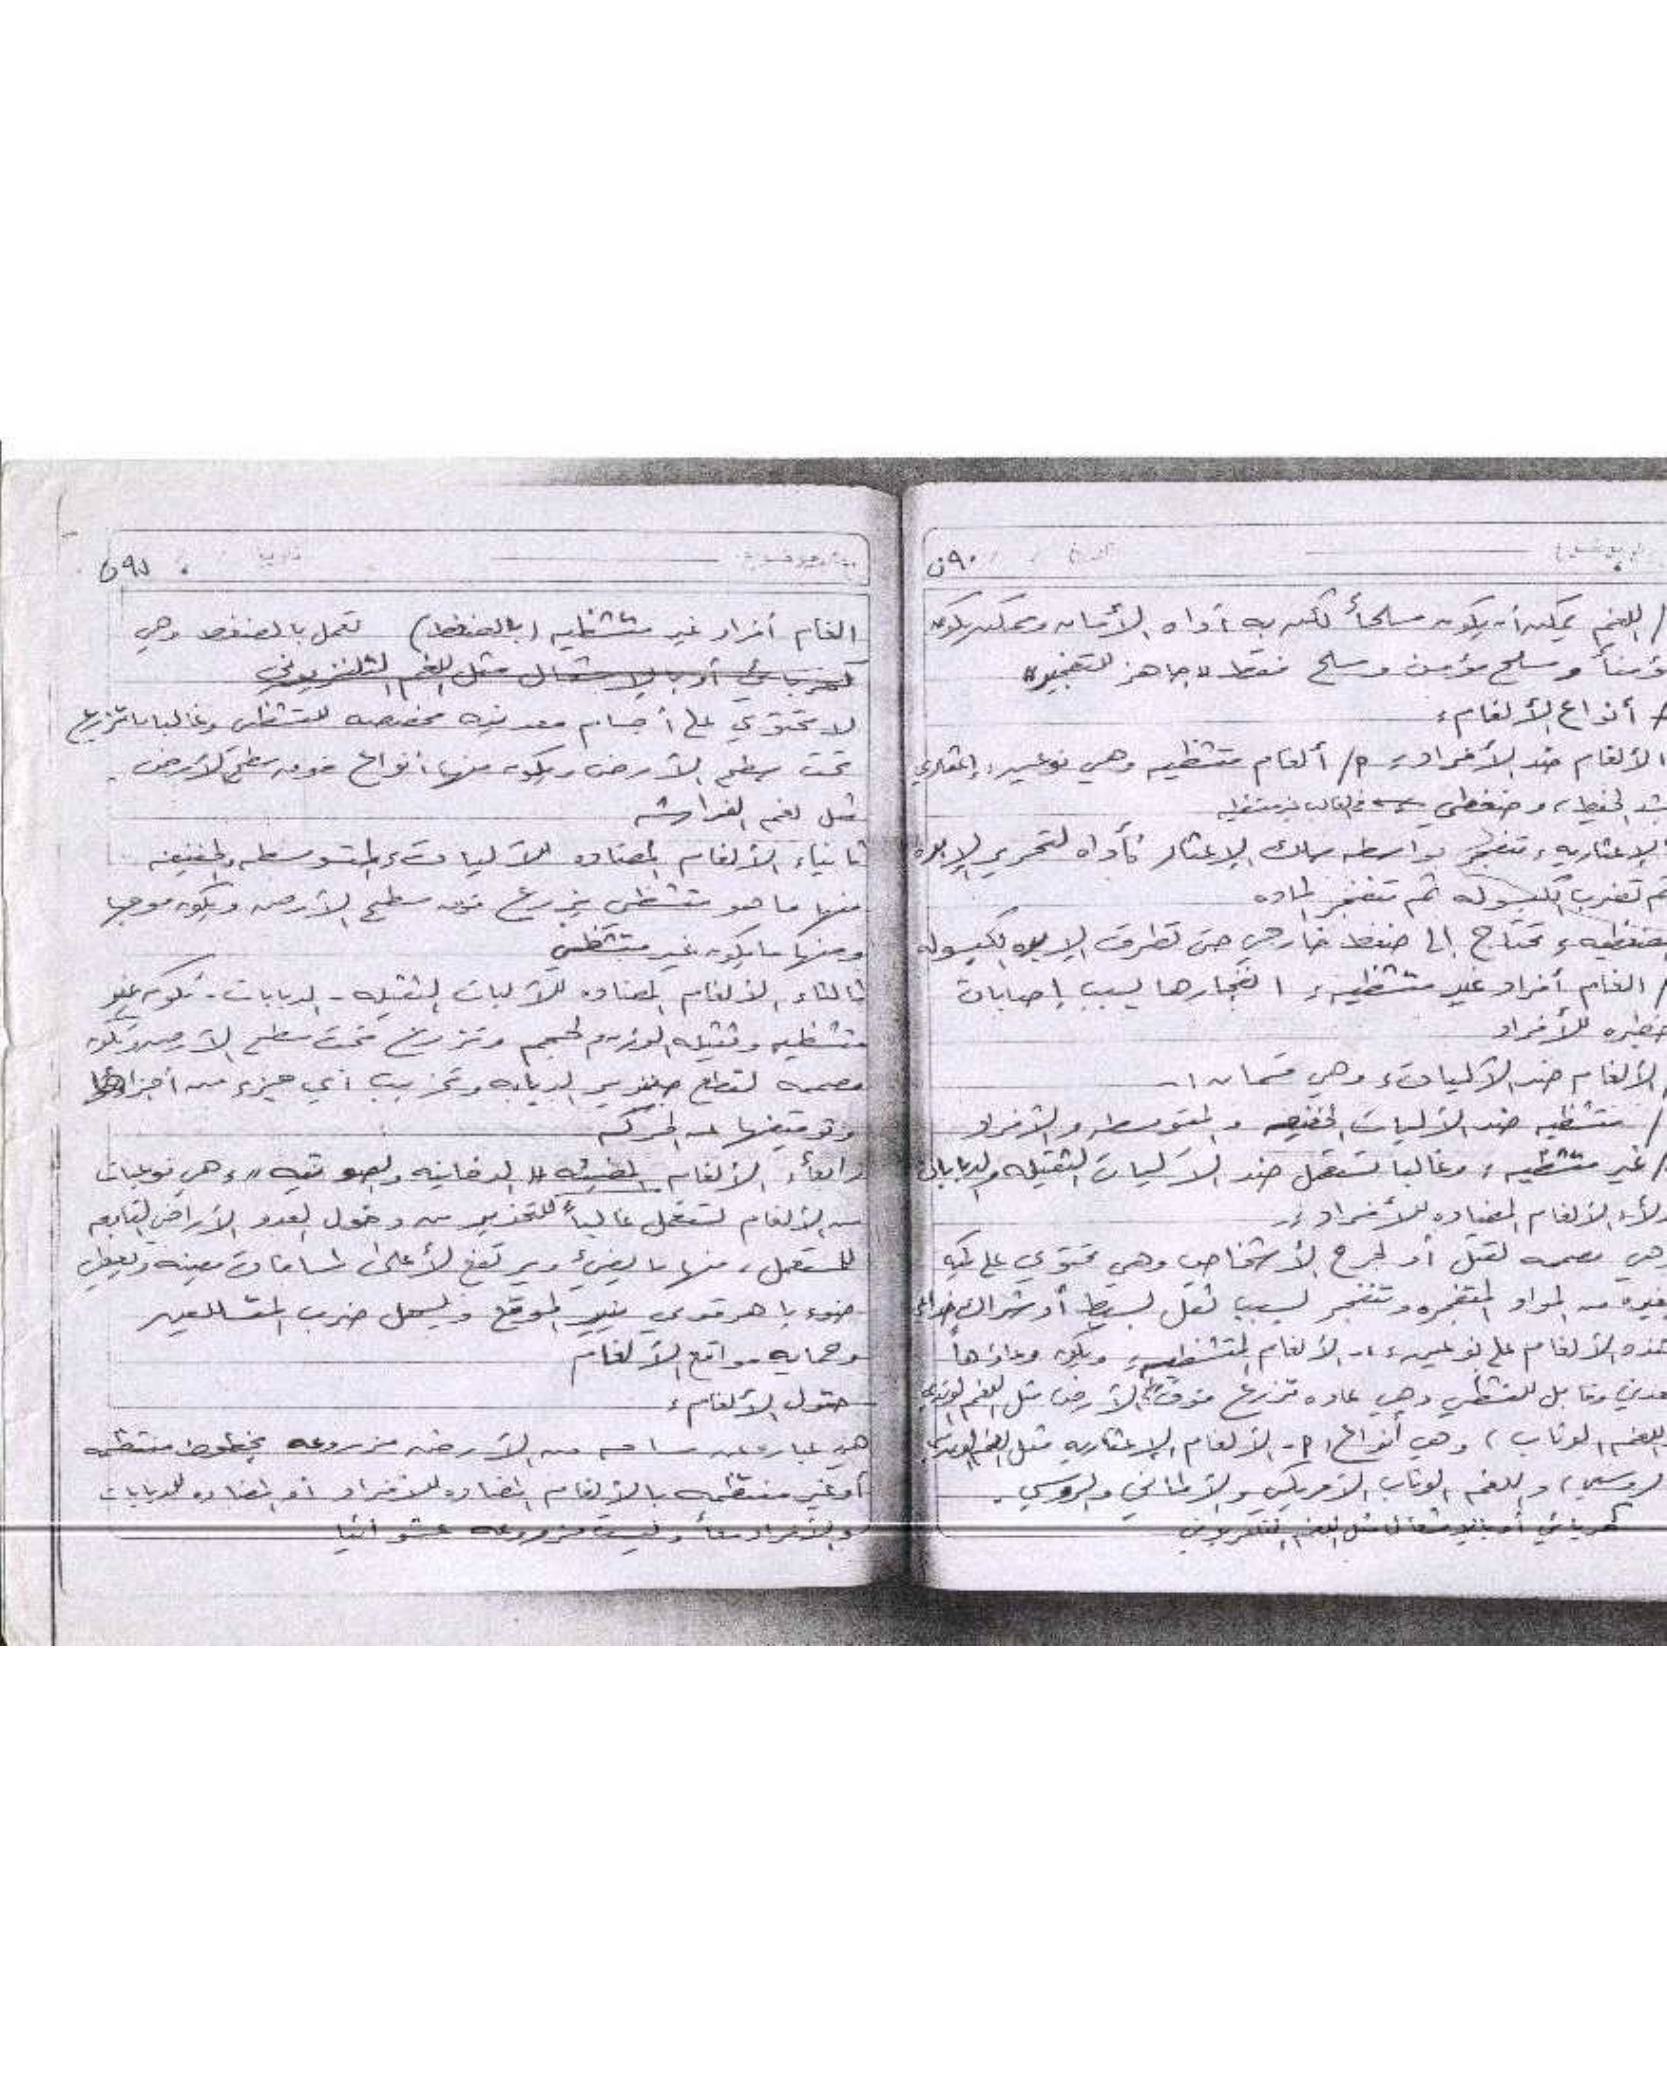 للغم يمكن أن يكون مسلحاً لكن به أداه الأمان ويمكن يكون
ومسلح مؤمن ومسلح فقط "جاهز للتفجير"
أنواع الألغام:
الألغام ضد الأفراد: م/ ألغام متشظيه وهي نوعين:
وضغطي في الغالب
الإعثاريه: تنفجر بواسطه سلك الإعثار كأداه لتحرير الإبره
ثم تضرب الكبسوله ثم تنفجر الماده
تحتاج إلى ضغط خارجي حتى تطرق الإبره الكبسوله
/ الغام أفراد غير متشظيه: انفجارها يسبب إصابات
خطيره للأفراد
الألغام ضد الآليات: وهي قسمان:-
/ متشظيه ضد الآليات الخفيفه والمتوسطه والأفراد
/ غير متشظيه: وغالبا تستعمل ضد الآليات الثقيله والدبابات
الألغام المضاده للأفراد:-
وهي مصممه لقتل أو لجرح الأشخاص وهي تحتوي على كميه
من المواد المتفجره وتنفجر بسبب ثقل بسيط أو شراك
هذه الألغام على نوعين: ١- الألغام المتشظيه: ويكون وعاؤها
وقابل للتشظي وهي عاده تزرع فوق الأرض مثل اللغم
اللغم الوثاب) وهي أنواع: م- الألغام الإعثاريه مثل اللغم
الروسي) واللغم الوثاب الأمريكي والألماني والروسي.
كهربائي أو بالإشعال مثل اللغم التلفزيوني
الغام أفراد غير متشظيه (بالضغط) تعمل بالضغط وهي
كهربائي أو بالإشعال مثل اللغم التلفزيوني
لا تحتوي على أجسام معدنيه مخصصه للتشظي وغالبا ما تزرع
تحت سطح الأرض ويكون منها أنواع فوق سطح الأرض
مثل لغم الفراشه
ثانياً: الألغام المضاده للآليات المتوسطه والخفيفه
منها ما هو متشظي يزرع فوق سطح الأرض ويكون موجها
ومنها ما يكون غير متشظي
ثالثاً: الألغام المضاده للآليات الثقيله - الدبابات - تكون غير
متشظيه وثقيله الوزن والحجم وتزرع تحت سطح الأرض وتكون
مصممه لقطع جنزير الدبابه وتخريب أي جزء من أجزائها
وتوقيفها عن الحركه
رابعاً: الألغام المضيئه "الدخانيه والصوتيه": هي نوعيات
من الألغام تستعمل غالباً للتحذير من دخول العدو الأراضي التابعه
للمستعمل، منها ما يضيئ ويرتفع لأعلى لمسافات معينه ويعطي
ضوء باهر قوي ينير الموقع ويسهل ضرب المتسللين
وحمايه مواقع الألغام
حقول الألغام:
هي عباره عن مساحه من الأرض مزروعه بخطوط منتظمه
أو غير منتظمه بالألغام المضاده للأفراد أو المضاده للدبابات
والأفراد معاً وليست مزروعه عشوائيا